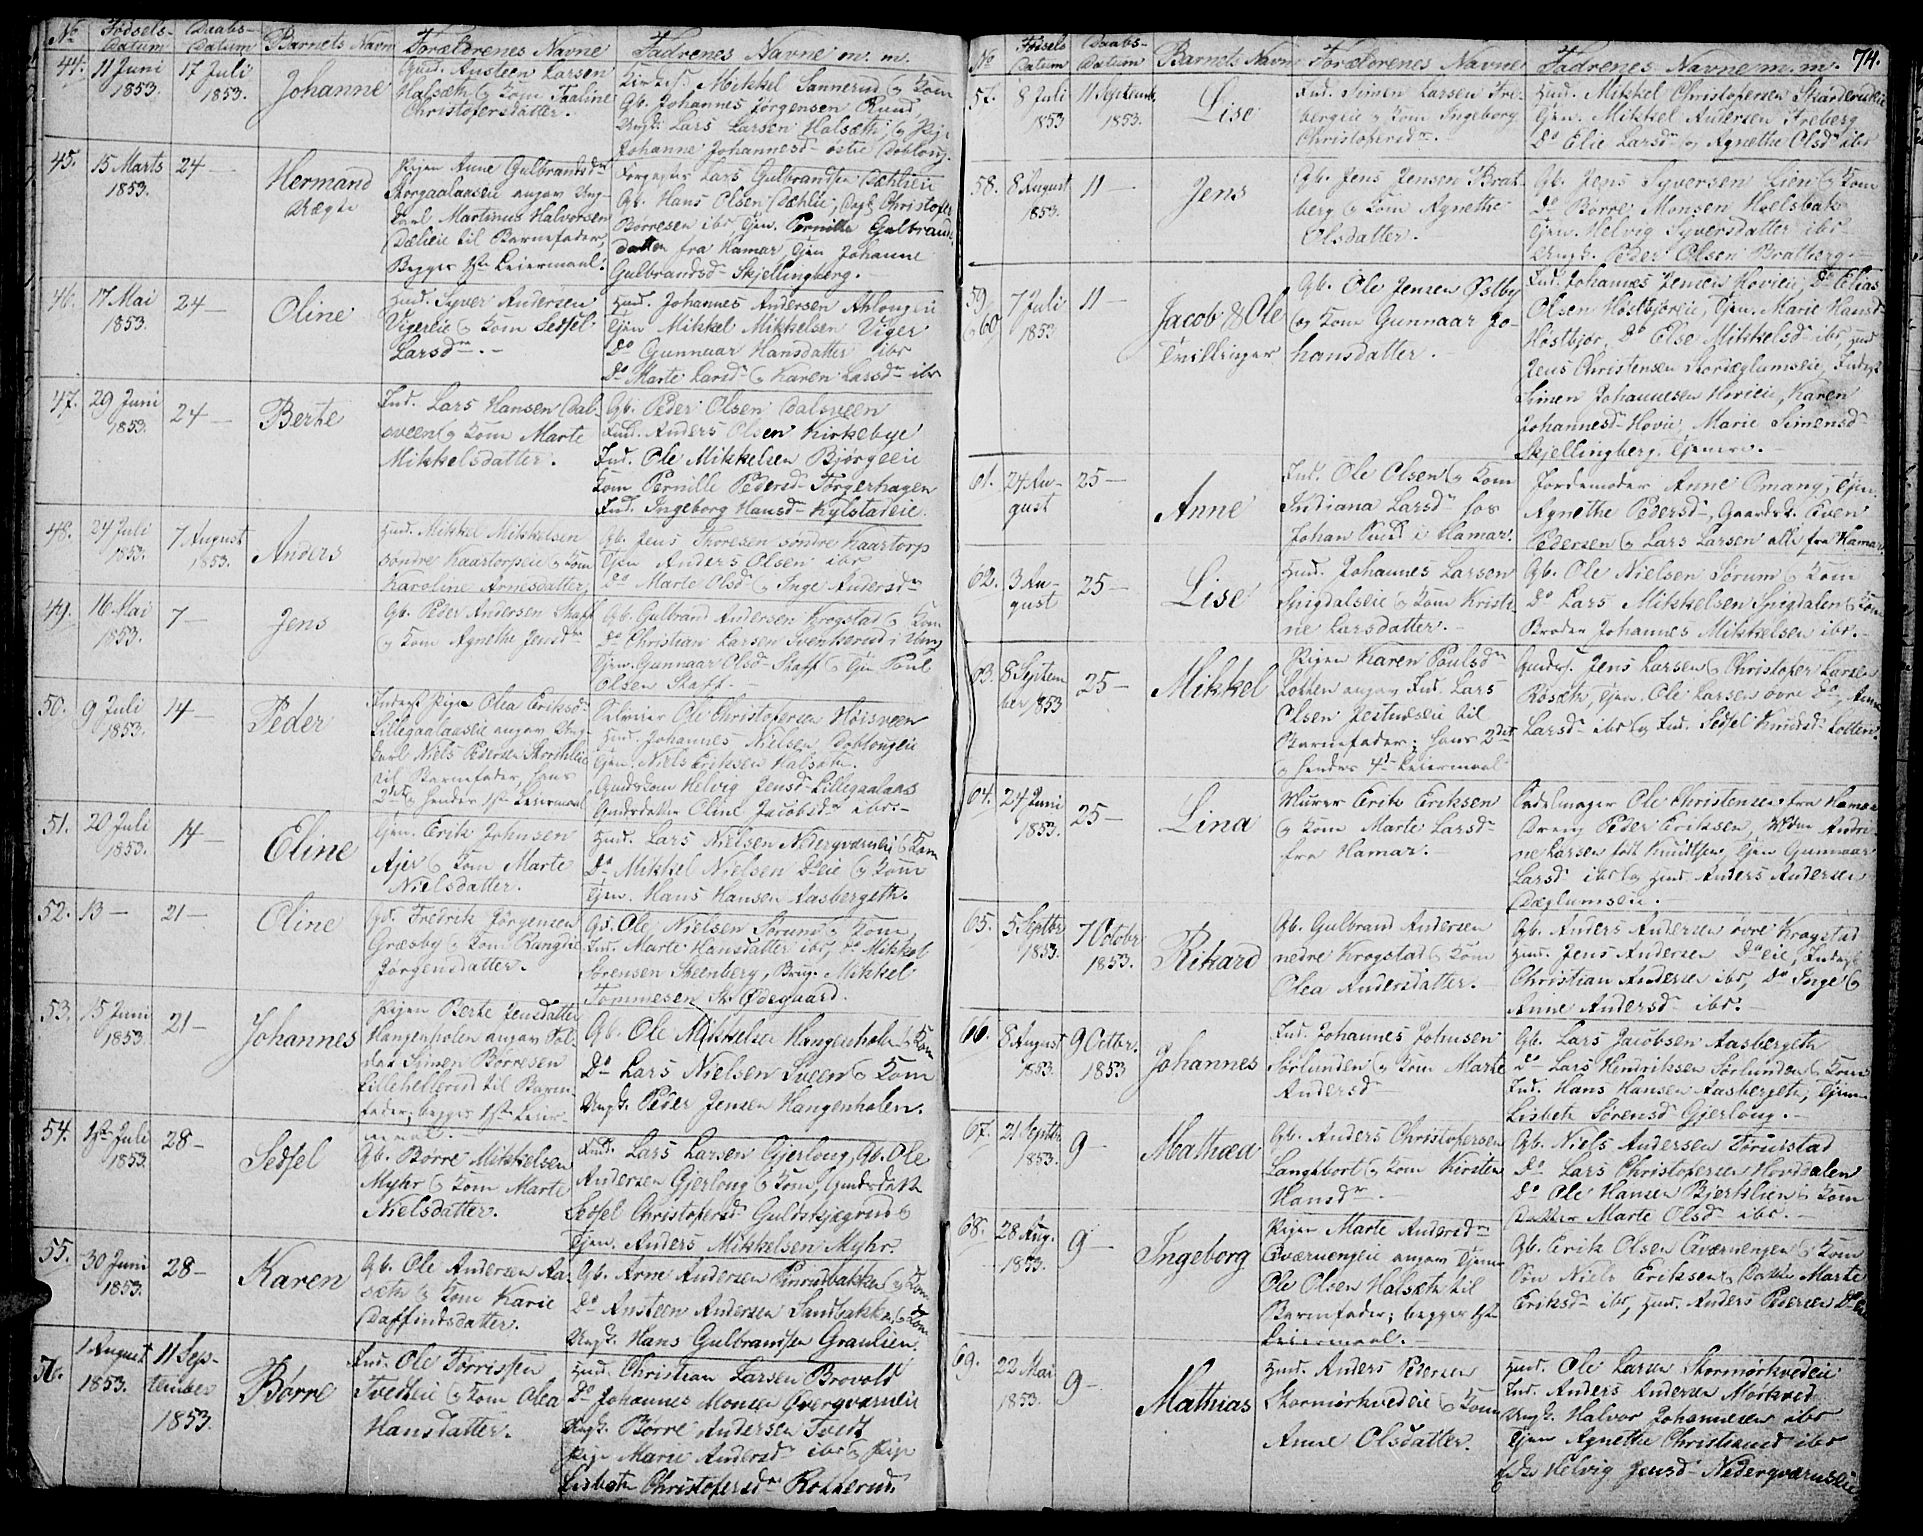 No Fødsels-Datum Daabs-Datum Barnets Navn Forældrenes Navne Fadrenes Navne m. m.
44. 11 Juni 1853. 17 Juli 1853. Johanne
Huusm. Austeen Larsen
Halsæth og Kone Thaline
Christophersdatter.
Mikkel Sannerud og Kone
Gb. Johannes Jørgensen Ruud,
Ungk. Lars Larsen Halsæth, og Pige
Johanne Johannesd østre Doblong.
45. 15 Marts 1853. 24 — Hermand
Pigen Anne Gulbrandsdr
angav Ung-
karl Martinus Halvorsen
Dælieie til Barnefader,
Begges 1ste Leiermaal.
Lars Gulbrandsen Dæhlieie
Gb. Hans Olsen Dæhlie, Christofer
Børresen ibd, Tjen. Pernille Gulbrands
datter fra Hamar, Tjen Johanne
Gulbrandsd Skjellingberg. —
46. 17 Mai 1853. 24 — Oline
Huusm. Syver Andersen
Vigereie og Kone Sedsel
Larsdr. —
Huusm. Johannes Andersen
Tjen Mikkel Mikkelsen Viger
Do Gunnaar Hansdatter ibd
Do Marte Larsd og Karen Larsdr ibd
47. 29 Juni 1853. 24 — Berthe
Ind. Lars Hansen Dal-
sveen og Kone Marte
Mikkelsdatter.
Gb. Peder Olsen Dalsveen
Ind. Anders Olsen Kirkebye
Ind. Ole Mikkelsen Bjørgeeie
Kone Pernille Pedersd Torgerhagen
Ind. Ingeborg Hansd Kylstadeie.
48. 24 Juli 1853. 7 August 1853. Anders
Huusm. Mikkel Mikkelsen
søndre Kaartorpeie og Kone
Karoline Arnesdatter
Gb. Jens Thoresen søndre Kaartorp
Tjen Anders Olsen ibd
Do Marte Olsd og Inge Andersdr
49. 16 Mai 1853. 7 — Jens
Gb. Peder Andersen Staff
og Kone Agnethe Jensdr
Gb. Gulbrand Andersen Krogstad og Kone
Do Christian Larsen Svenkerud i Vang
Tjen. Gunnaar Olsd Staff og Tjen Poul
Olsen Staff. —
50. 9 Juli 1853. 14 — Peder
Pigen Olea Eriksd
Lillegaalaaseie angav Ung-
karl Niels Pedersen
til Barnefader, hans
2det og hendes 1ste Leiermaal
Selveier Ole Christophersen Høisveen
Huusm. Johannes Nielsen Doblougeie
Tjen. Niels Eriksen Halsæth.
Gaardkone Helvig Jensd Lillegaalaas
Gaardsdatter Oline Jacobsdr ibd. —
51. 20 Juli 1853. 14 — Eline
Tjen. Erik Johnsen
Ajer og Kone Marte
Nielsdatter.
Huusm. Lars Nielsen Nederqværneie og Kone
Do Mikkel Nielsen Do eie og Kone
Tjen. Hans Hansen Aasbergeth.
52. 13 — 21 — Oline
Gb. Fredrik Jørgensen
Græsby og Kone Rangdie
Jørgensdatter.
Gb. Ole Nielsen Sorum og Kone
Ind. Marte Hansdatter ibd, Do Mikkel
Sørensen Steenberg, Brug. Mikkel
Tommesen St. Ødegaard.
53. 15 Juni 1853. 21 — Johannes
Pigen Berte Jensdatter
Hangenholen angav Sol-
dat Simen Børresen
Lillehellerud til Barne-
fader; begges 1ste Leier-
maal. —
Gb. Ole Mikkelsen Hangenholen og Kone
Do Lars Nielsen Sveen og Kone
Ungk. Peder Jensen Hangenholen.
54. 1ste Juli 1853. 28 — Sedsel
Gb. Børre Mikkelsen
Myhr og Kone Marte
Nielsdatter.
Ind. Lars Larsen Gjerlong, Gb. Ole
Andersen Gjerlong og Kone, Gaardsdatter
Sedsel Christophersd og
Tjen. Anders Mikkelsen Myhr.
55. 30 Juni 1853. 28 — Karen
Gb. Ole Andersen Aa-
sæth og Kone Karie
Daffindsdatter.
Gb. Arne Andersen og Kone
Do Austeen Andersen Sandbakken og Kone
Ungk. Hans Gulbrandsen Graulien.
56. 1 August 1853. 11 September 1853. Børre
Ind. Ole Torrissen
Tvedteie og Kone Olea
Hansdatter.
Huusm. Christian Larsen Brovold
Do Johannes Monsen Overqværneie
Ungk. Børre Andersen Tvedt
Pige Marie Andersd ibd og Pige
Lisbeth Christophersdr Rotherud.
74.
No Fødsels Datum Daabs-Datum Barnets Navn Forældrenes Navne Fadrenes Navne m. m.
57. 8 Juli 1853 11 Septemb. 1853. Lise
Ind. Simen Larsen Fre-
bergeie og Kone Ingeborg
Christophersdr.
Huusm. Mikkel Christophersen
Tjen. Mikkel Andersen Freberg
Do Elie Larsd og Agnethe Olsd ibd
58. 8 August 1853. 11 — Jens
Gb. Jens Jensen Brat-
berg og Kone Agnethe
Olsdatter.
Gb. Jens Syversen Lien og Kone
Do Børre Monsen Hoelsbak
Tjen. Helvig Syversdatter ibd
Ungk. Peder Olsen Bratberg. —
59 & 60 7 Juli 1853 11 Jacob & Ole Tvillinger
Gb. Ole Jensen Østby
og Kone Gunnaar Jo-
hansdatter. —
Ind. Johannes Jensen Hovieie, Do Elias
Olsen Høstbjøreie, Tjen. Marie Hansd
Høstbjør, Do Else Mikkelsd ibd, Huusm
Jens Christensen
Simen Johannesen Hovieie, Karen
Johannesd Hovie, Marie Simensd
Skjellingberg. Tjenere. —
61. 24 August 25 — Anne
Ind. Ole Olsen og Kone
Indiana Larsd hos
Johan i Hamar.
Jordemoder Anne Omang, Tjen.
Agnethe Pedersd, Gaardsk. Even
Pedersen og Lars Larsen alle fra Hamar.
62. 3 August 25 — Lise
Huusm. Johannes Larsen
Snigdalseie og Kone Kristi-
ne Larsdatter. —
Gb. Ole Nielsen Sorum og Kone
Do Lars Mikkelsen Snigdalen og Kone
Broder Johannes Mikkelsen ibd. —
63. 8 September 1853 25 — Mikkel
Pigen Karen Poulsdr
Lotten angav Ind. Lars
Olsen til
Barnefader; hans 2det
og hendes 4de Leiermaal
Jens Larsen og Christopher Larsen
Røsæth, Tjen. Ole Larsen øvre Do, Anne
Larsd ibd og Ind. Sedsel Knudsd Lotten.
64. 24 Juni 1853. 25 — Lina
Murer Erik Eriksen
og Kone Marte Larsdr
fra Hamar. —
Sadelmager Ole Christensen fra Hamar
Dreng Peder Eriksen, Mdm Andri-
ne Larsen født Knudtsen, Tjen Gunnaar
Larsd ibd og Huusm. Anders Andersen
Dæglumseie. —
65. 5 Septbr 1853. 7 Octobr 1853. Rikard
Gb. Gulbrand Andersen
nedre Krogstad og Kone
Olea Andersdatter.
Gb. Anders Andersen øvre Krogstad
Huusm. Jens Andersen Do eie,
Christian Andersen ibd, Do Inge og
Anne Andersd ibd. —
66. 8 August 1853. 9 Octbr. 1853 Johannes
Ind. Johannes Johnsen
Sørlunden og Kone Marte
Andersd
Gb. Lars Jacobsen Aasbergeth
Do Lars Hendriksen Sørlunden og Kone
Ind. Hans Hansen Aasbergeth, Tjen
Lisbeth Sørensd Gjerlong. —
67. 21 Septbr 1853. 9 — Mathea
Gb. Anders Christophersen
Langtbort og Kone Kirsten
Hansdr. —
Gb. Niels Andersen Torudstad
Do Lars Christophersen Hovdalen
Do Ole Hansen Bjerkelien og Kone
Datter Marte Olsd ibd. —
68. 28 Aug. 1853. 9 — Ingeborg
Pigen Marte Andersdr
Qværnengeie angav Tjen
Ole Olsen Halsæth til
Barnefader; begges 1ste
Leiermaal.
Gb. Erik Olsen Qværnengen og Kone
Søn Niels Eriksen, Datter Marte
Eriksd ibd, Huusm. Anders Pedersen Do eie
69. 22 Mai 1853. 9 — Mathias
Huusm. Anders Pedersen
Stormørkvedeie og Kone
Anne Olsdatter.
Huusm. Ole Larsen Stormørkvedeie
Ind. Anders Andersen Mørkved
Ungk. Halvor Johannesen ibd
Tjen Agnethe Christiansd ibd
Helvig Jensd Nederqværneie